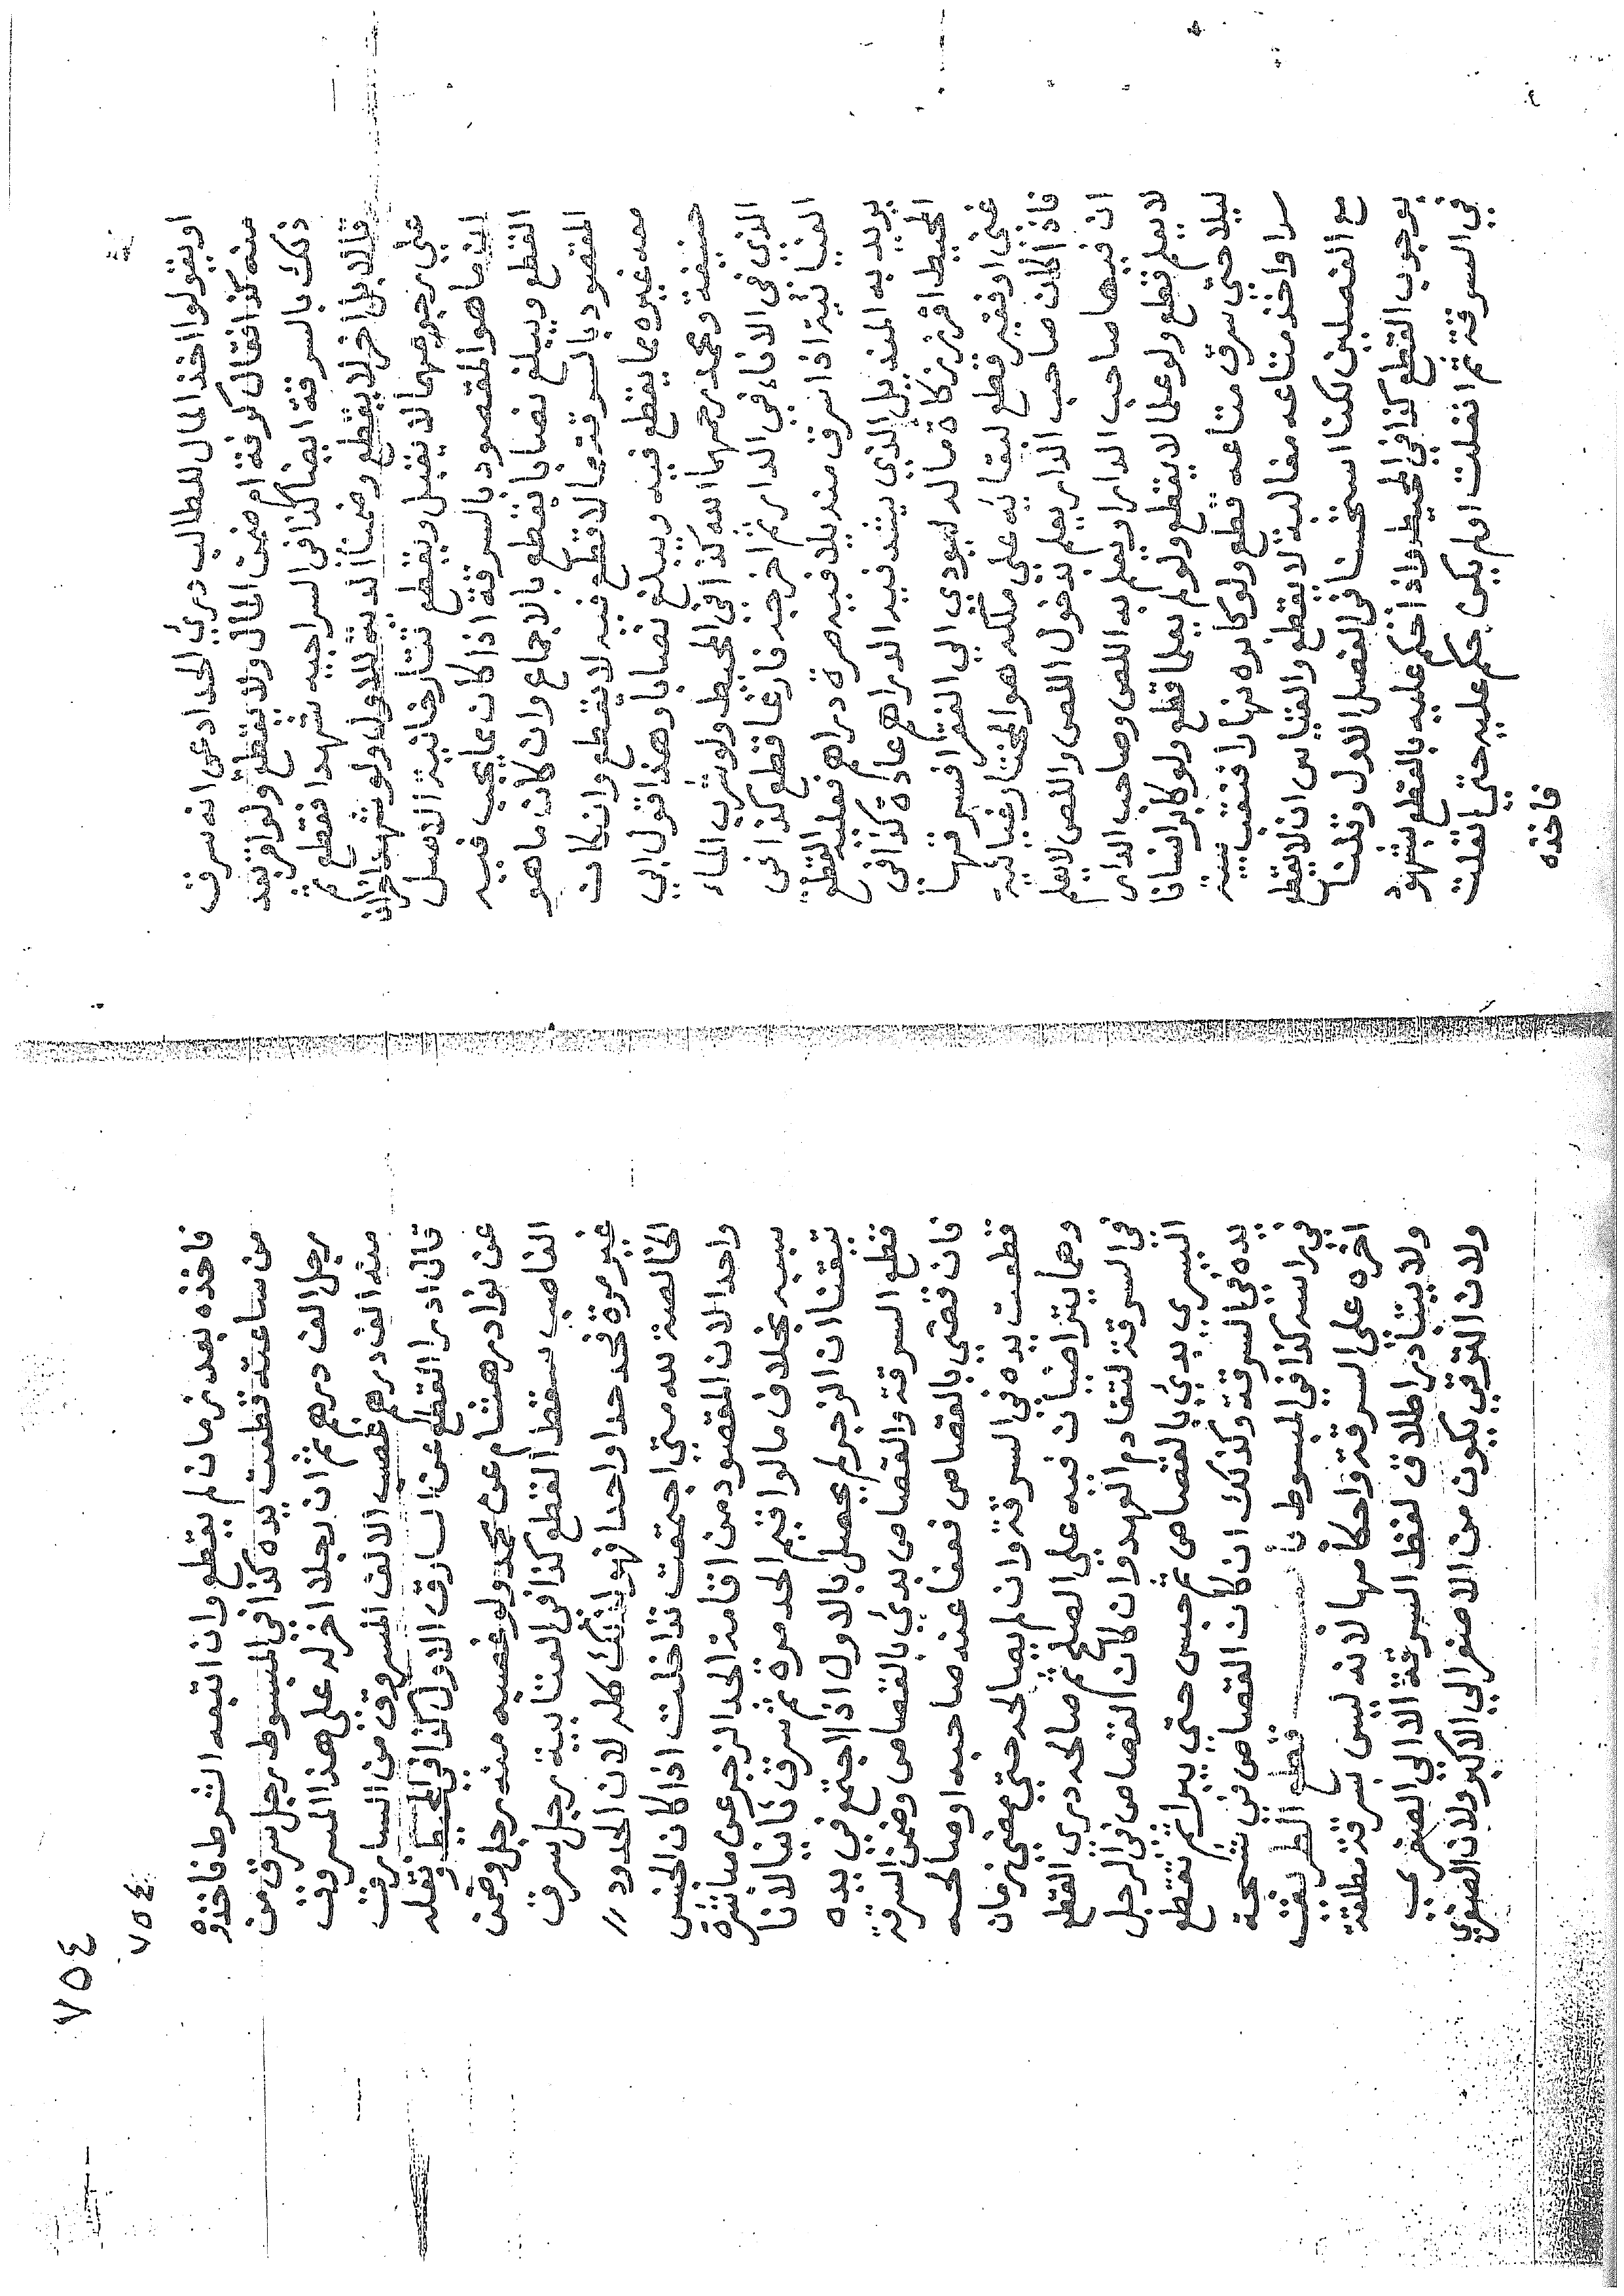 او يقولوا اخذ المال للطالب درئ الحد ادعى انه سرق
منه كذا فقال كوفة ام ضمن المال ولا يقطع ولو اقر بعد
ذلك بالسرقة ايضا كذا في السراجيه شهدا فقطع ثم
قالا بل اخر لا يقطع وضمنا الدية للاول ولو شهدا
على رجوعهما لا تقبل ويقطع تتارخانية الاصل
ان ما هو المقصود بالسرقة اذا كان مما يجب فيه
القطع ويبلغ نصابا يقطع بالاجماع وان كان ما هو
المقصود بالسرقة مما لا قطع فيه لا يقطع وان كان
معه غيره مما يقطع فيه ويبلغ نصابا وهذا قول ابي
حنيفة ومحمد رحمهما الله كذا في المحيط ولو شرب الماء
الذي في الاناء في الدار ثم اخرجه فارغا قطع كذا في
العتابية اذا سرق منديلا فيه صرة دراهم فعليه القطع
يريد به المنديل الذي يشد فيه الدراهم عادة كذا في
المحيط افرز زكاة ماله ليؤدي الى الفقرا فسرقها
غني او فقير قطع لبقائه على ملكه هو المختار غياثية
فاذا كان صاحب الدار يعلم بدخول اللص واللص لا يعلم
ان فيها صاحب الدار او يعلم به اللص وصاحب الدار
لا يعلم قطع ولو علما لا يقطع ولو لم يعلما قطع ولو كابر انسانا
ليلا حتى سرق متاعه قطع ولو كابره نهارا فنقب بيته
سرا واخذ متاعه مغالبة لا يقطع والقياس ان لا يقطع
مع الفصلين لكنا استحسنا في الفصل الاول وقلنا
بوجوب القطع كذا في المحيط واذا حكم عليه بالقطع بشهود
في السرقة ثم انفلت او لم يكن حكم عليه حتى انفلت
فاخذه

٧٥٤
٧٥٤
فاخذه بعد زمان لم يقطع وان اتبعه الشرط فاخذوه
من ساعته قطعت يده كذا في المبسوط رجل سرق من
رجل الف درهم ثم ان رجلا اخر له على هذا المسروق
منه الف درهم غصب الالف المسروق من السارق
قال ادرا القطع عن السارق الاول كذا في المحيط ونقله
عن نوادر هشام عن محمد ولو غصبه منه رجل وضمن
الغاصب سقط القطع كذا في العتابية رجل سرق
غير مرة فحد حدا واحدا فهو لذلك كله لان الحدود //
الخالصة لله متى اجتمعت تداخلت اذا كان الجنس
واحدا لان المقصود من اقامة الحد الزجر عن مباشرة
سببه بخلاف ما لو اقيم الحد مرة ثم سرق ثانيا لانا
تيقنا ان الزجر لم يحصل بالاول اذا اجتمع في يده
قطع السرقة والقصاص بدئ بالقصاص وضمن السرقة
فان قضى بالقصاص فعفا عنه صاحبه او صالحه
قطعت يده في السرقة وان لم يصالحه حتى مضى زمان
وهما يتراضيان فيه على الصلح ثم صالحه درئ القطع
في السرقة لتقادم العهد وان كان القصاص في الرجل
اليسرى بدئ بالقصاص ثم حبس حتى يبرا ثم يقطع
يده في السرقة وكذلك ان كان القصاص في شجة
في راسه كذا في المبسوط باب قطع الطريق
اخره على السرقة واحكامها لانه ليس بسرقة مطلقة
ولا يتبادر اطلاق لفظ السرقة الا الى الصغرى
ولان الترقي يكون من الاصغر الى الاكبر ولان الصغرى